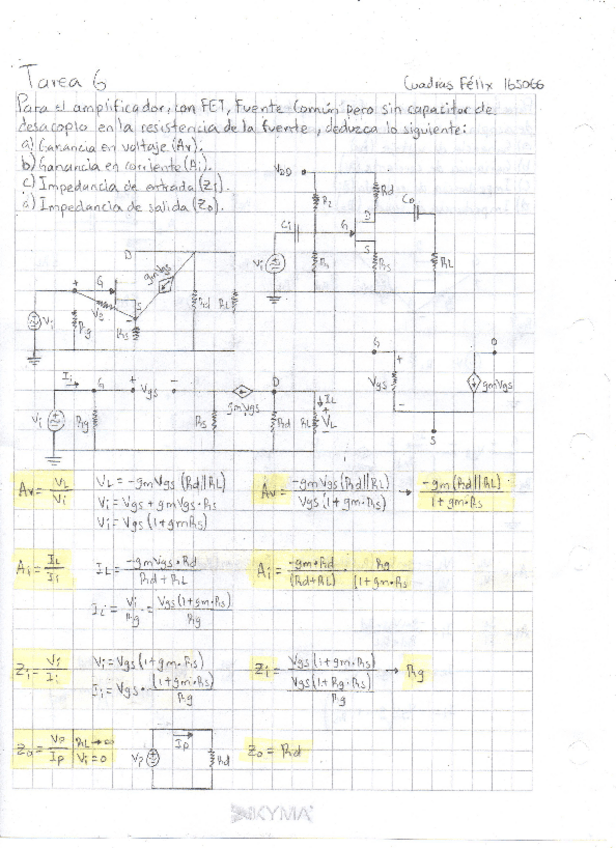 Tarea 6
Cuadras Félix 165066
Para el amplificador, con FET, Fuente Común pero sin capacitor de
desacoplo en la resistencia de la fuente, deduzca lo siguiente:
a) Ganancia en voltaje (Av).
b) Ganancia en corriente (Ai).
c) Impedancia de entrada (Zi).
d) Impedancia de salida (Zo).
VDD
Rd
R2
Co
D
Ci
G
S
Vi
R1
Rs
RL
D
gmVgs
G
S
Vi
Rg
Rs
Rd
RL
G
D
Vgs
gmVgs
S
Ii
G
+ Vgs -
gmVgs
D
IL
Vi
Rg
Rs
Rd
RL
VL
Av = VL/Vi
VL = -gmVgs (Rd||RL)
Vi = Vgs + gmVgs·Rs
Vi = Vgs (1+gmRs)
Av = -gmVgs(Rd||RL) / Vgs(1+gm·Rs) → -gm(Rd||RL) / 1+gm·Rs
Ai = IL/Ii
IL = -gmVgs·Rd / Rd+RL
Ii = Vi/Rg = Vgs(1+gm·Rs) / Rg
Ai = -gm·Rd / (Rd+RL) · Rg / (1+gm·Rs
Zi = Vi/Ii
Vi = Vgs(1+gm·Rs)
Ii = Vgs · (1+gm·Rs) / Rg
Zi = Vgs(1+gm·Rs) / Vgs(1+Rg·Rs) / Rg → Rg
Zo = Vo/Ip | RL→∞ Vi=0
Ip
Vp
Rd
Zo = Rd
KYMA